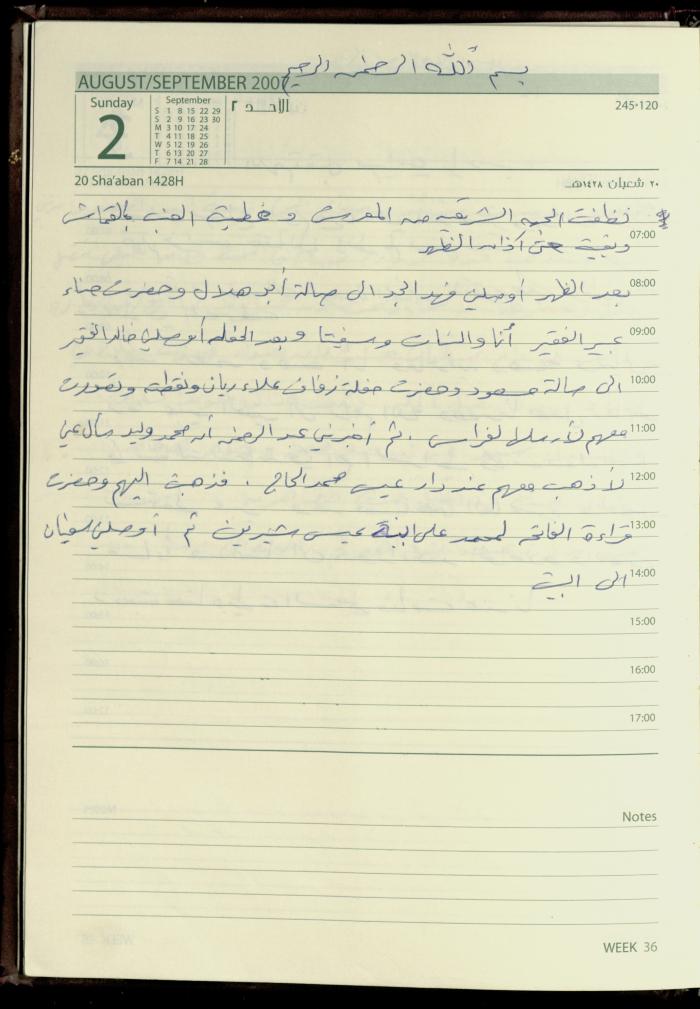 بسم الله الرحمن الرحيم
AUGUST/SEPTEMBER 2007
Sunday
2
September
S 1 8 15 22 29
S 2 9 16 23 30
M 3 10 17 24
T 4 11 18 25
W 5 12 19 26
T 6 13 20 27
F 7 14 21 28
الأحـــد ٢
245-120
20 Sha'aban 1428H
٢٠ شعبان ١٤٢٨هـ
نظفت الجهه الشرقيه من المعرش وغطيت العنب بالقماش
07:00
وبقيت حتى اذان الظهر
08:00
بعد الظهر أوصلني فهد الجد الى صالة أبو هلال وحضرت حناء
09:00
عبير الفقير أنا والبنات وسفيتا وبعد الحفله أوصلني خالد الفقير
10:00
الى صالة مسعود وحضرت حفلة زفاف علاء ريان ونقطته وتصورت
11:00
معهم لأرسلها لفراس . ثم أخبرني عبد الرحمن أن محمد وليد سأل عني
12:00
لأذهب معهم عند دار عيسى محمد الحاج . فذهبت اليهم وحضرت
13:00
قراءة الفاتحه لمحمد على ابنة عيسى شيرين ثم أوصلني سفيان
14:00
الى البيت
15:00
16:00
17:00
Notes
WEEK 36